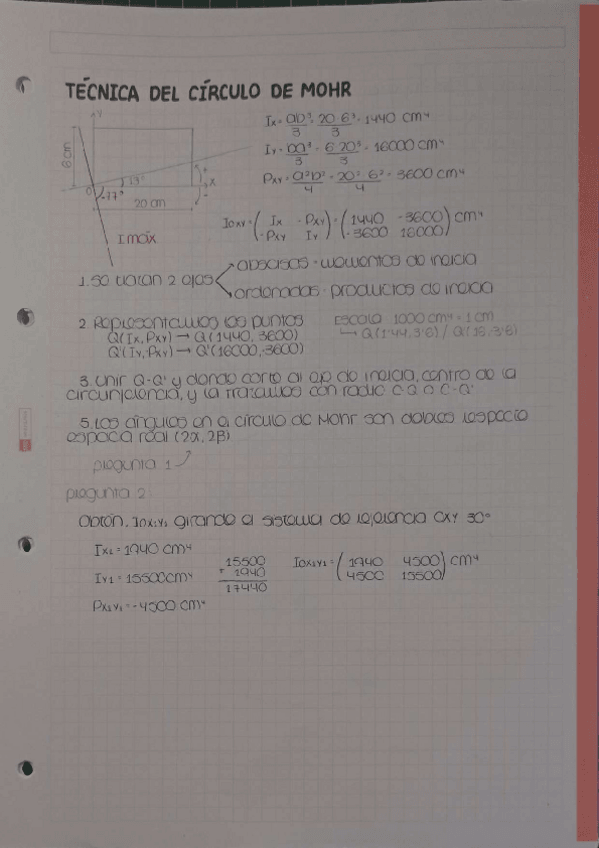 TÉCNICA DEL CÍRCULO DE MOHR
Y
6 cm
O
13°
77°
X
20 cm
Imáx
Ix = ab³/3 = 20·6³/3 = 1440 cm⁴
Iy = ba³/3 = 6·20³/3 = 16000 cm⁴
Pxy = a²b²/4 = 20²·6²/4 = 3600 cm⁴
Ioxy = (Ix -Pxy / -Pxy Iy) = (1440 -3600 / -3600 16000) cm⁴
1. Se trazan 2 ejes
abscisas - momentos de inercia
ordenadas - productos de inercia
2. Representamos los puntos
Escala 1000 cm⁴ = 1 cm
Q(Ix, Pxy) → Q(1440, 3600)
Q'(Iy, Pxy) → Q'(16000, -3600)
3. Unir Q-Q' y donde corte al eje de inercia, centro de la
circunferencia, y la trazamos con radio C-Q o C-Q'
5. Los ángulos en el círculo de Mohr son dobles respecto
espacio real (2α, 2β)
pregunta 1
pregunta 2:
Obten. Iox₁y₁ girando el sistema de referencia OXY 30°
Ix₁ = 1940 cm⁴
Iy₁ = 15500 cm⁴
Px₁y₁ = -4500 cm⁴
15500
+ 1940
17440
Iox₁y₁ = (1940 4500 / 4500 15500) cm⁴